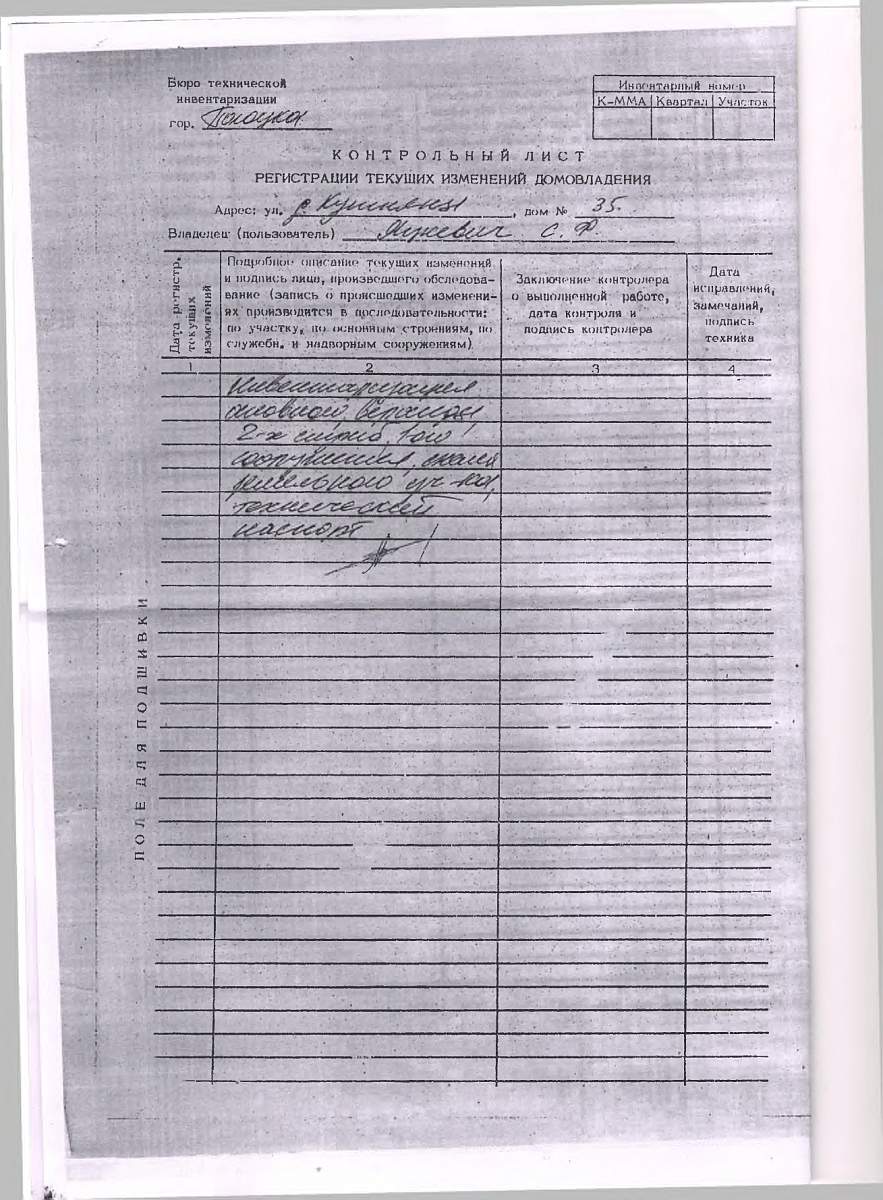 Бюро технической
инвентаризации
гор. Полоцка
Инвентарный номер
К-ММА Квартал Участок
КОНТРОЛЬНЫЙ ЛИСТ
РЕГИСТРАЦИИ ТЕКУЩИХ ИЗМЕНЕНИЙ ДОМОВЛАДЕНИЯ
Адрес: ул. д. , дом № 35.
Владелец (пользователь) С. Ф.
Дата регистр.
текущих
изменений
Подробное описание текущих изменений
и подпись лица, произведшего обследова-
вание (запись о происшедших изменени-
ях производится в последовательности:
по участку, по основным строениям, по
служебн. и надворным сооружениям).
Заключение контролера
о выполненной работе,
дата контроля и
подпись контролера
Дата
исправлений,
замечаний,
подпись
техника
1 2 3 4
Инвентаризация
веранды
2-х служб, 1ого
сооружения,
земельного уч-ка,
технический
паспорт.
ПОЛЕ ДЛЯ ПОДШИВКИ